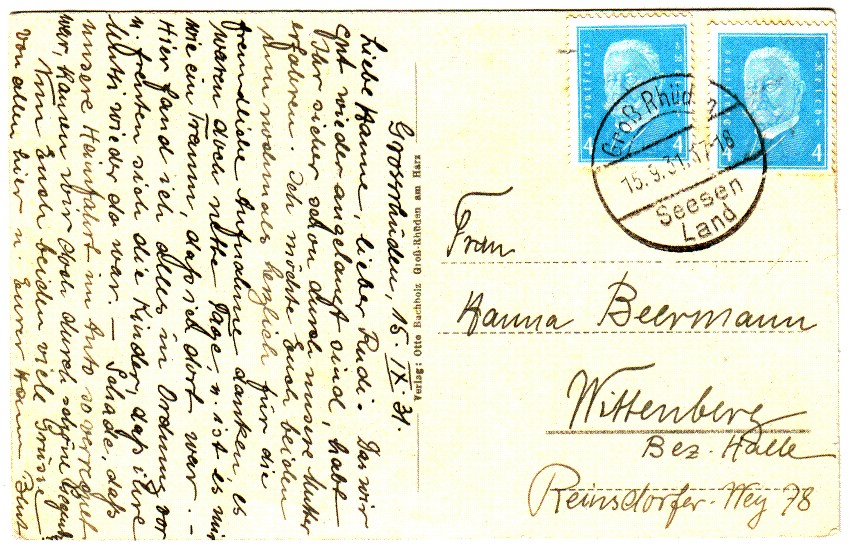 Grossrhüden, 15. IX. 31.
Liebe Hanne, lieber Rudi. Das wir
gut wieder angelangt sind, habt
Ihr sicher schon durch unsere Mutter
erfahren. Ich möchte Euch beiden
nun nochmals herzlich für die
freundliche Aufnahme danken, es
waren doch nette Tage, u. ist es mir
wie ein Traum, daß ich dort war. -
Hier fand ich alles in Ordnung vor
u. freuten sich die Kinder, daß ihre
Mutti wieder da war. - Schade, daß
unsere Heimfahrt im Auto so verregnet
war, kamen wir doch durch schöne
Nun Euch beiden viele Grüsse
von allen hier u. Eurer
Verlag: Otto Buchholz Groß-Rhüden am Harz
Deutsches Reich
4
Deutsches Reich
4 4
Groß Rhüden
15.9.31.17-18
Seesen
Land
Frau
Hanna Beermann
Wittenberg
Bez. Halle
Reinsdorfer-Weg 78